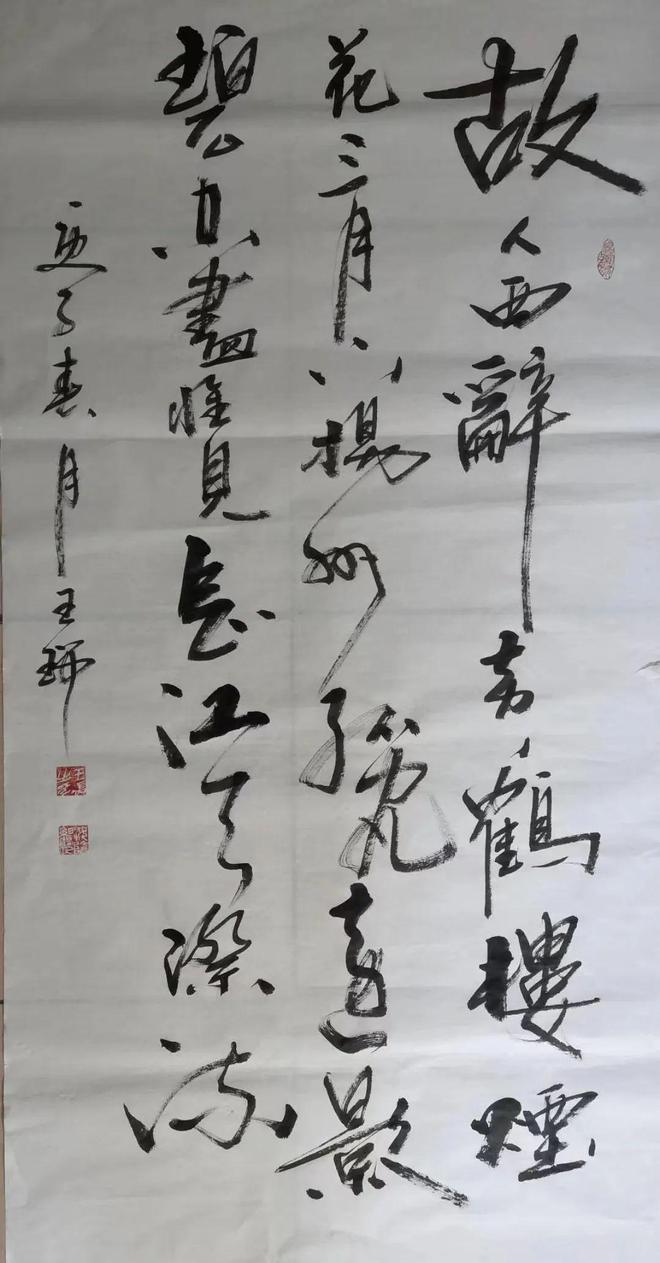 故人西辭黄鶴樓煙
花三月下揚州孤帆遠影
碧空盡惟見長江天際流
庚子春月王